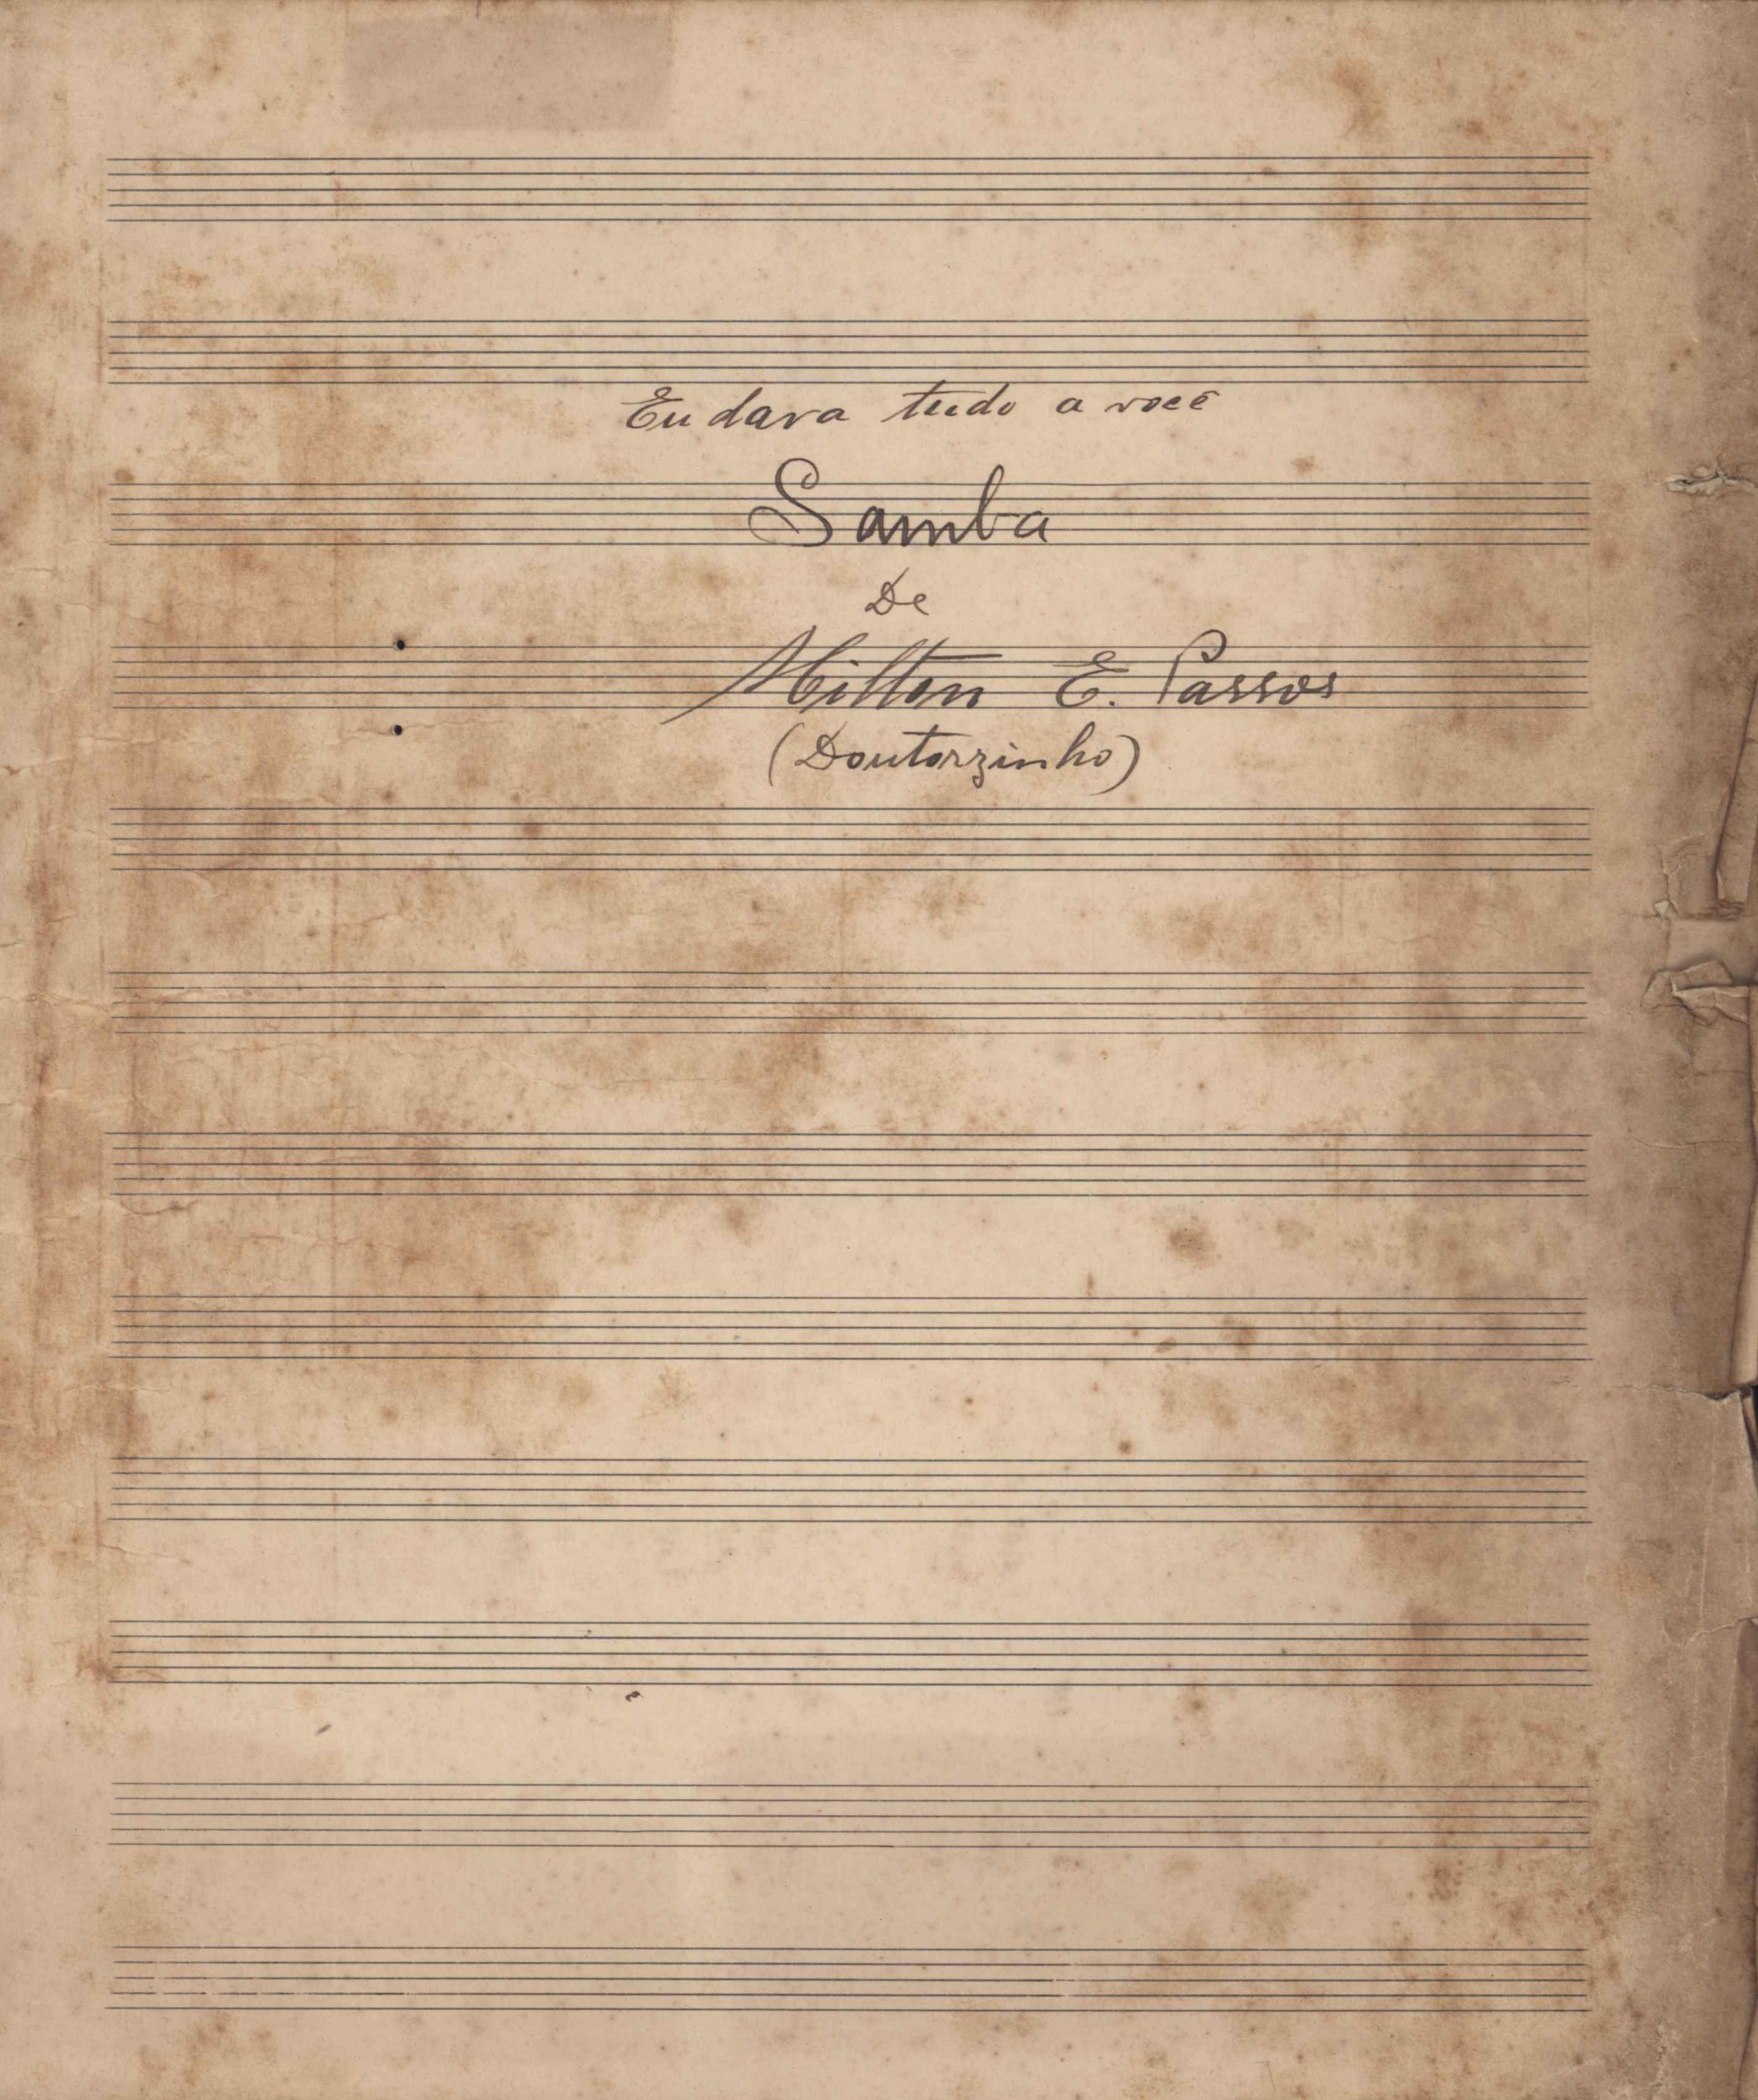 Eu dava tudo a você
Samba
De
Milton E. Passos
(Doutorzinho)